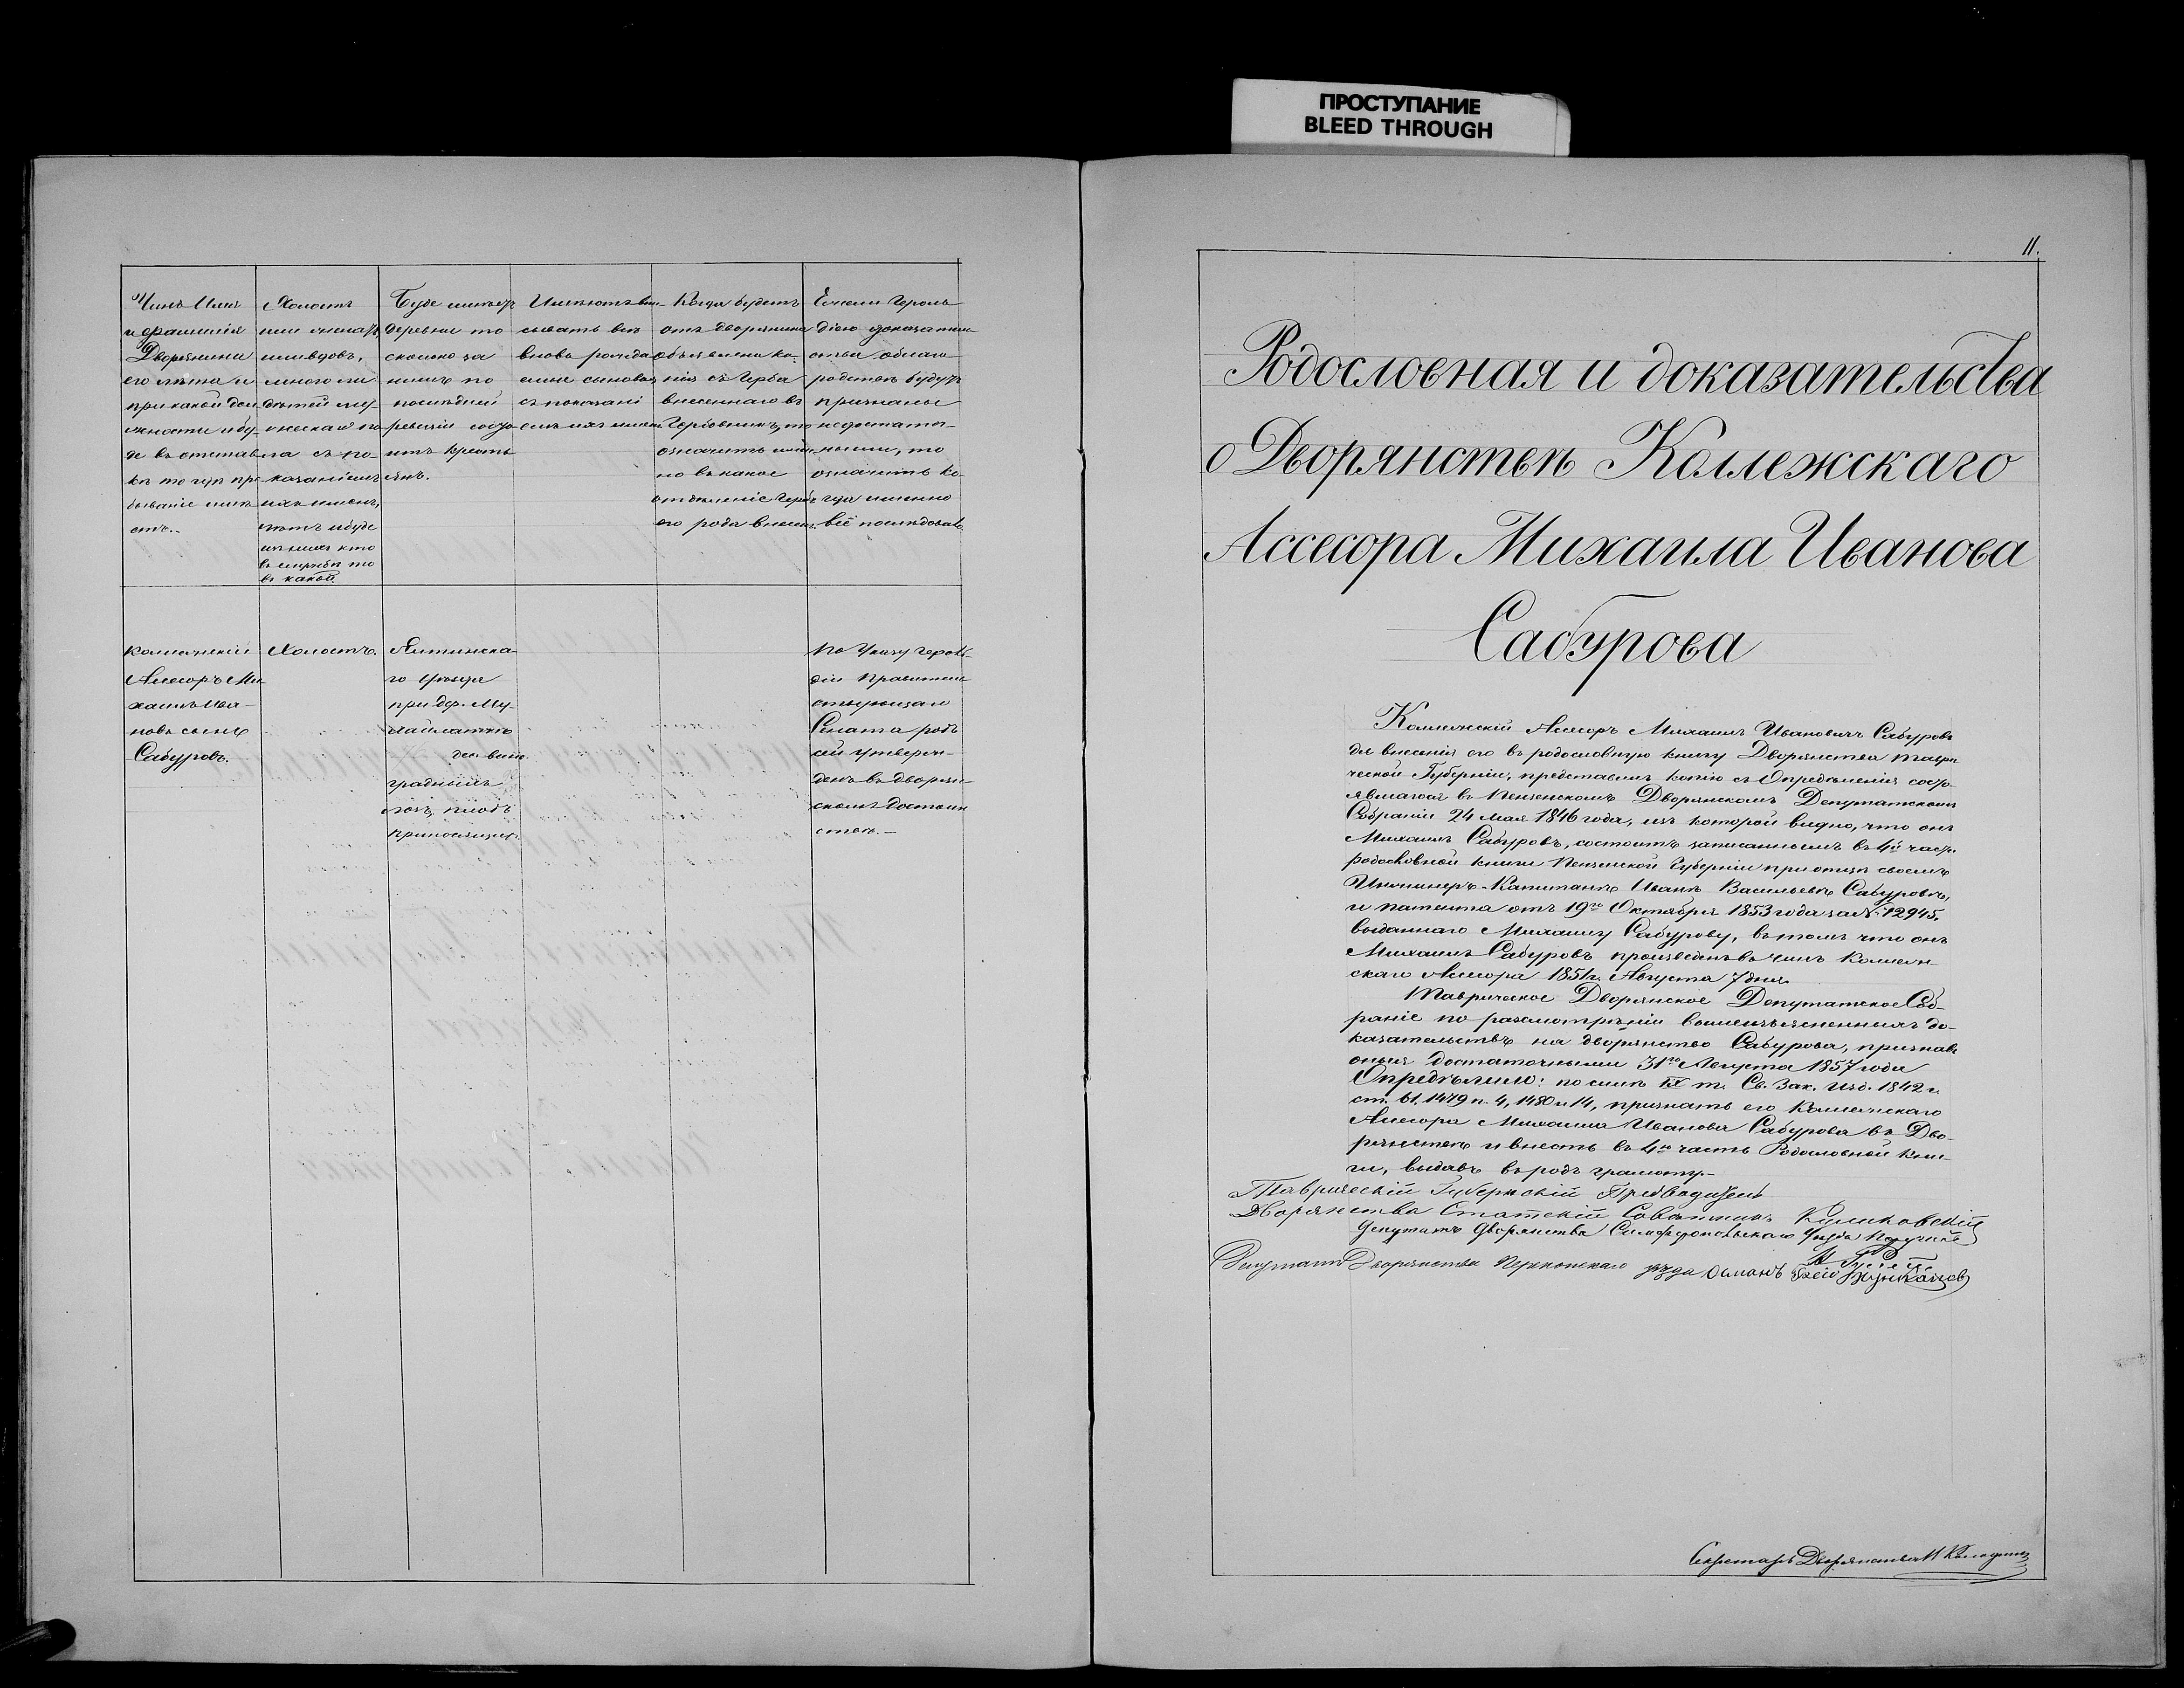 ПРОСТУПАНИЕ
BLEED THROUGH
Чинъ Имя
и фамилія
Дворянина
его лѣта и
при какой дол-
жности и бу-
де въ отстав-
кѣ то гдѣ пре-
бываніе имѣ-
етъ.
Холостъ
или женатъ,
или вдовъ,
много ли
дѣтей му-
жескаго по-
ла съ по-
казаніемъ
ихъ именъ,
лѣтъ и буде
изъ нихъ кто
въ службѣ то
въ какой.
Буде имѣетъ
деревни то
сколько за
нимъ по
послѣдней
ревизіи состо-
итъ крестъ-
янъ.
Имѣютъ впи-
сывать всѣ
вновь рожда-
емые сыновья
съ показані-
емъ ихъ именъ
Когда будетъ
отъ дворянина
объявлена ко-
пія съ Герба
внесеннаго въ
Гербовникъ, то
означить имен-
но въ какое
отдѣленіе Гербъ
его рода внесенъ.
Ежели Героль-
діею доказатель-
ства о благо-
родствѣ будутъ
признаны
недостаточ-
ными, то
означить ко-
гда именно
всё послѣдовало
Коллежскій
Ассесоръ Ми-
хаилъ Ива-
новъ сынъ
Сабуровъ.
Холостъ.
Ялтинска-
го уѣзда
при дер. Му-
градныхъ
лозъ, плодъ
приносящихъ.
По Указу Героль-
діи Правитель-
ствующаго
Сената родъ
сей утверж-
денъ въ дворян-
скомъ достоин-
ствѣ.—
11.
Родословная и доказательства
о Дворянствѣ Коллежскаго
Ассесора Михаила Иванова
Сабурова
Коллежскій Ассесоръ Михаилъ Ивановичъ Сабуровъ
для внесенія его въ родословную книгу Дворянства Таври-
ческой Губерніи, представилъ копію съ Опредѣленія состо-
явшагося въ Пензенскомъ Дворянскомъ Депутатскомъ
Собраніи 24 мая 1846 года, изъ которой видно, что онъ
Михаилъ Сабуровъ, состоитъ записаннымъ въ 4й часть
родословной книги Пензенской Губерніи при отцѣ своемъ
Инженеръ-Капитанѣ Иванѣ Васильевѣ Сабуровѣ,
и патента отъ 19го Октября 1853 года за № 12945.
выданнаго Михаилу Сабурову, въ томъ что онъ
Михаилъ Сабуровъ произведенъ въ чинъ Коллеж-
скаго Ассесора 1851 г. Августа 7 дня.
Таврическое Дворянское Депутатское Соб-
раніе по разсмотрѣніи вышеизъясненныхъ до-
казательствъ на дворянство Сабурова, признавъ
оныя достаточными 31го Августа 1857 года
Опредѣлило: по силѣ IX т. Св. Зак. изд. 1842 г.
ст. 61. 1479 п. 4, 1480 и 14, признать его Коллежскаго
Ассесора Михаила Иванова Сабурова въ Дво-
рянствѣ и внесть въ 4ю часть Родословной Кни-
ги, выдавъ въ родъ грамоту.—
Таврическій Губернскій Предводитель
Дворянства Статскій Совѣтникъ
Депутатъ Дворянства Симферопольскаго Уѣзда Поручикъ
Депутатъ Дворянства Перекопскаго уѣзда Османъ Бей
Секретарь Дворянства